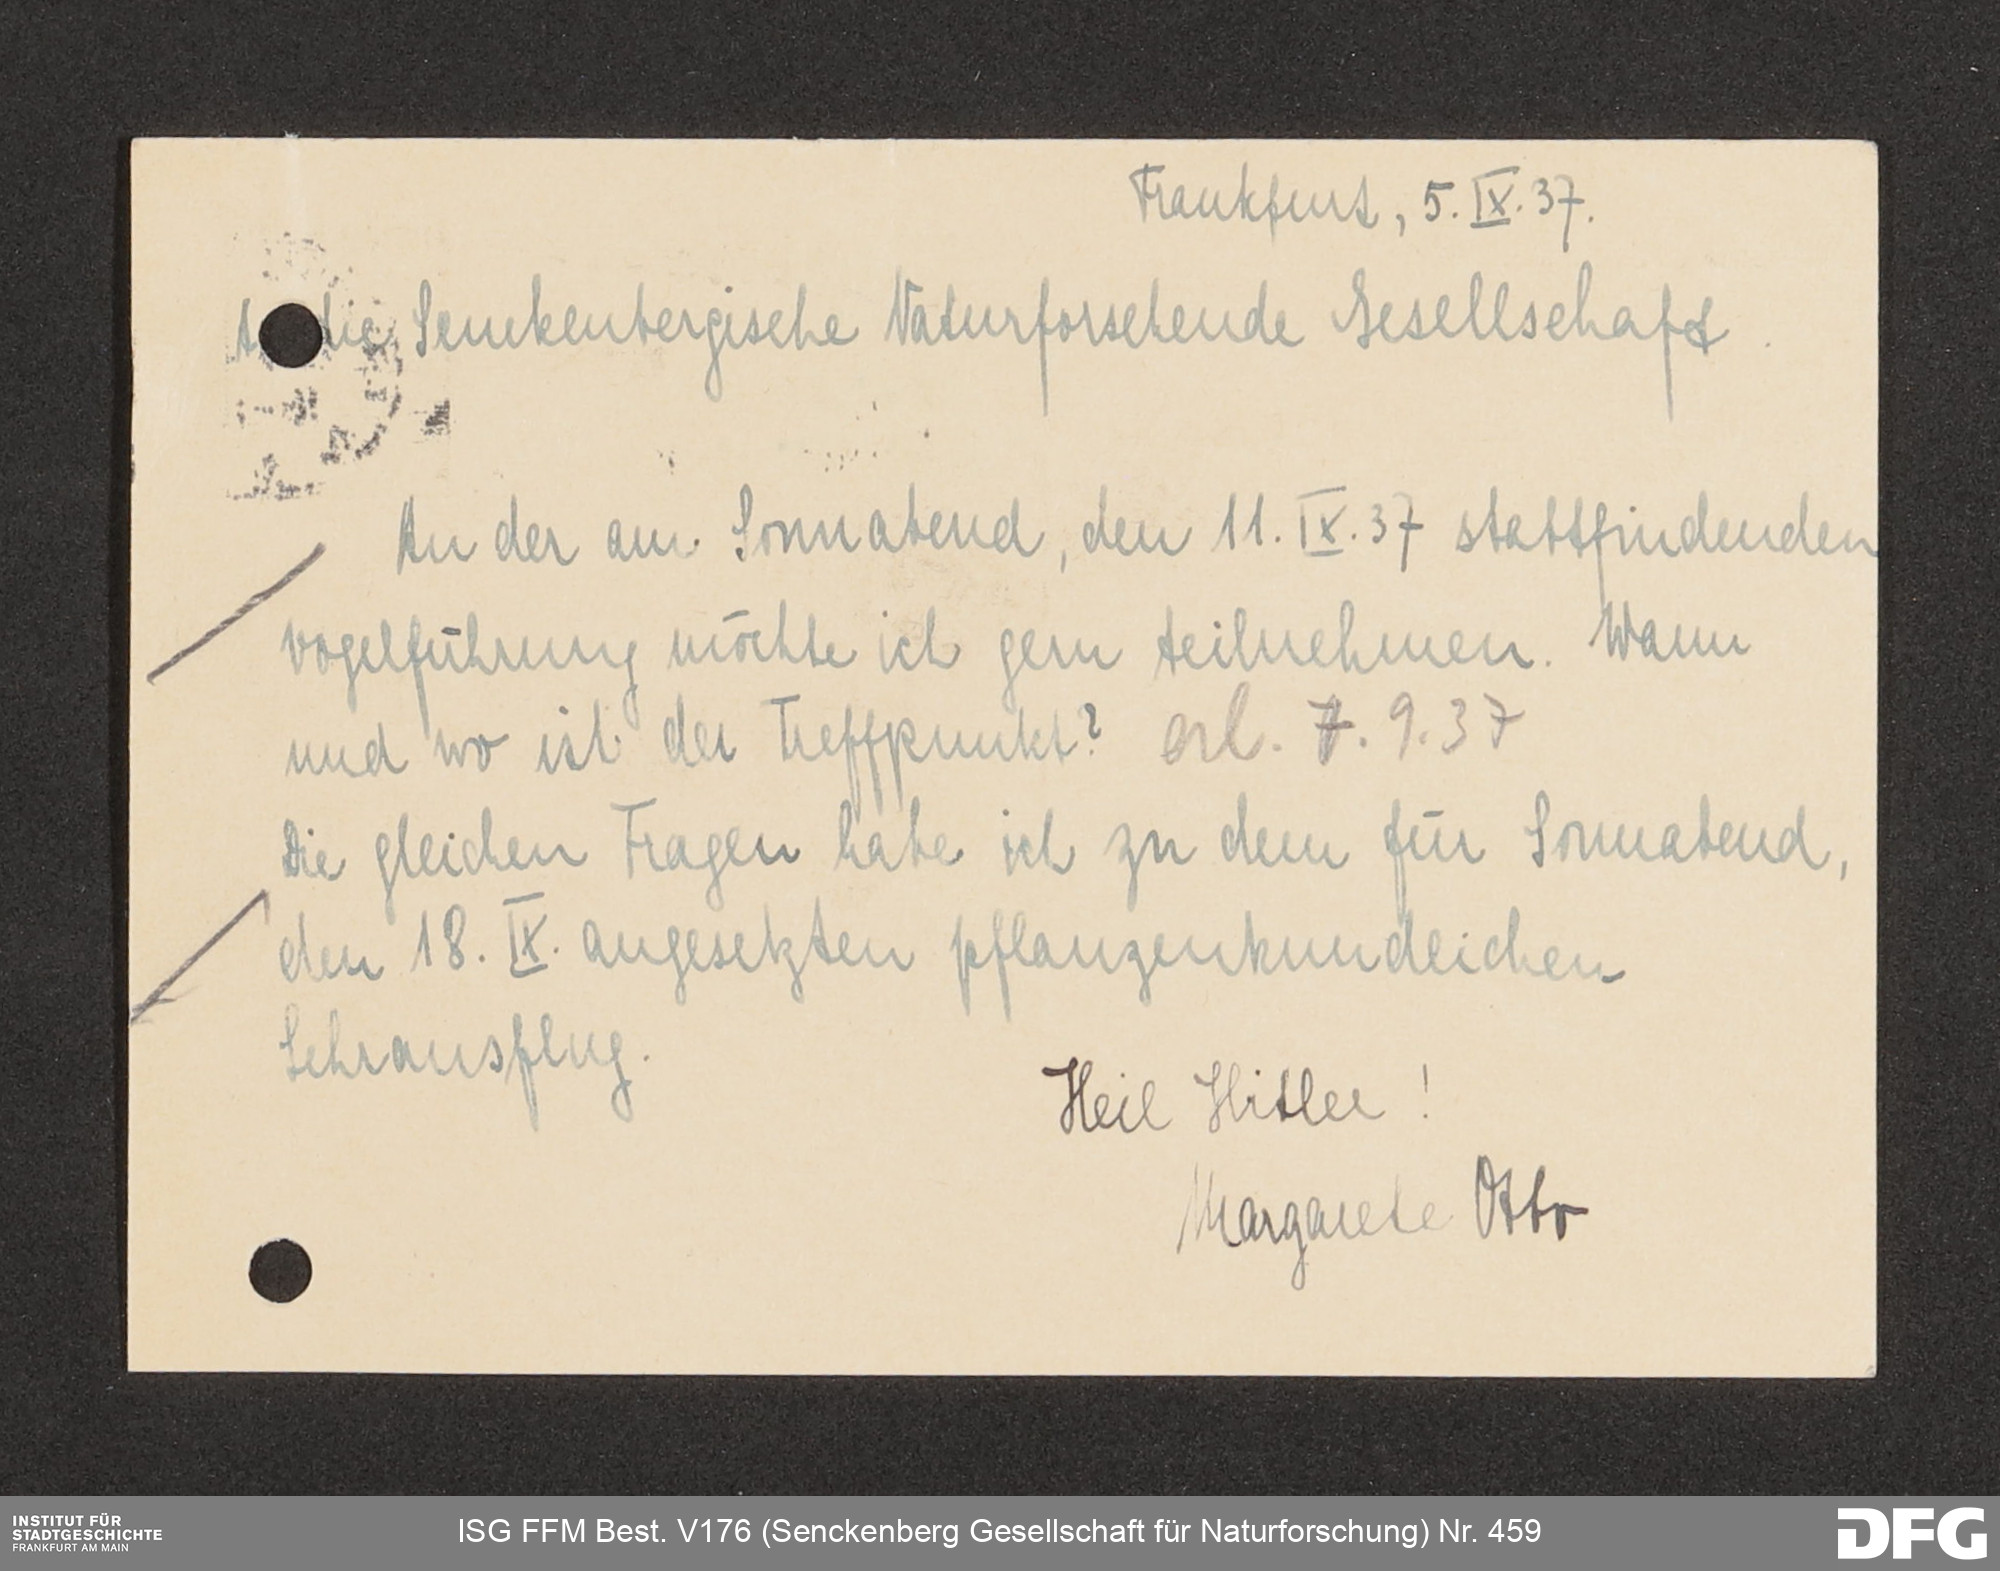 Frankfurt, 5. IX. 37.
An die Senckenbergische Naturforschende Gesellschaft.
An der am Sonnabend, den 11. IX. 37 stattfindenden
Vogelführung möchte ich gern teilnehmen. Wann
und wo ist der Treffpunkt? erl. 7. 9. 37
Die gleichen Fragen habe ich zu dem für Sonnabend,
den 18. IX. angesetzten pflanzenkundlichen
Lehrausflug.
Heil Hitler!
Margarete Otto
INSTITUT FÜR
STADTGESCHICHTE
FRANKFURT AM MAIN
ISG FFM Best. V176 (Senckenberg Gesellschaft für Naturforschung) Nr. 459
DFG